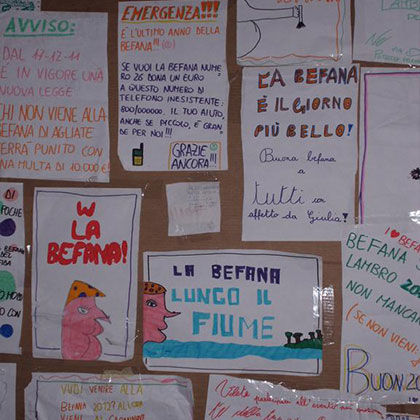 AVVISO:
DAL 17-12-11
È IN VIGORE UNA
NUOVA LEGGE
CHI NON VIENE ALLA
BEFANA DI AGLIATE
VERRA' PUNITO CON
UNA MULTA DI 10.000 €!
EMERGENZA!!!
È L'ULTIMO ANNO DELLA
BEFANA!!!
SE VUOI LA BEFANA NUME
RO 26 DONA UN EURO
A QUESTO NUMERO DI
TELEFONO INESISTENTE:
800/000000. IL TUO AIUTO,
ANCHE SE PICCOLO, È GRAN
DE PER NOI!!!
GRAZIE
ANCORA!!!
LA BEFANA
È IL GIORNO
PIÙ BELLO!
Buona befana
a
tutti con
affetto da Giulia!
W
LA
BEFANA!
LA BEFANA
LUNGO IL
FIUME
I ♥ BEFA
BEFANA
LAMBRO 20
NON MANCA
(SE NON VIENI
BUON
DI
POCHE
VUOI VENIRE ALLA
BEFANA 2012? ALLORA